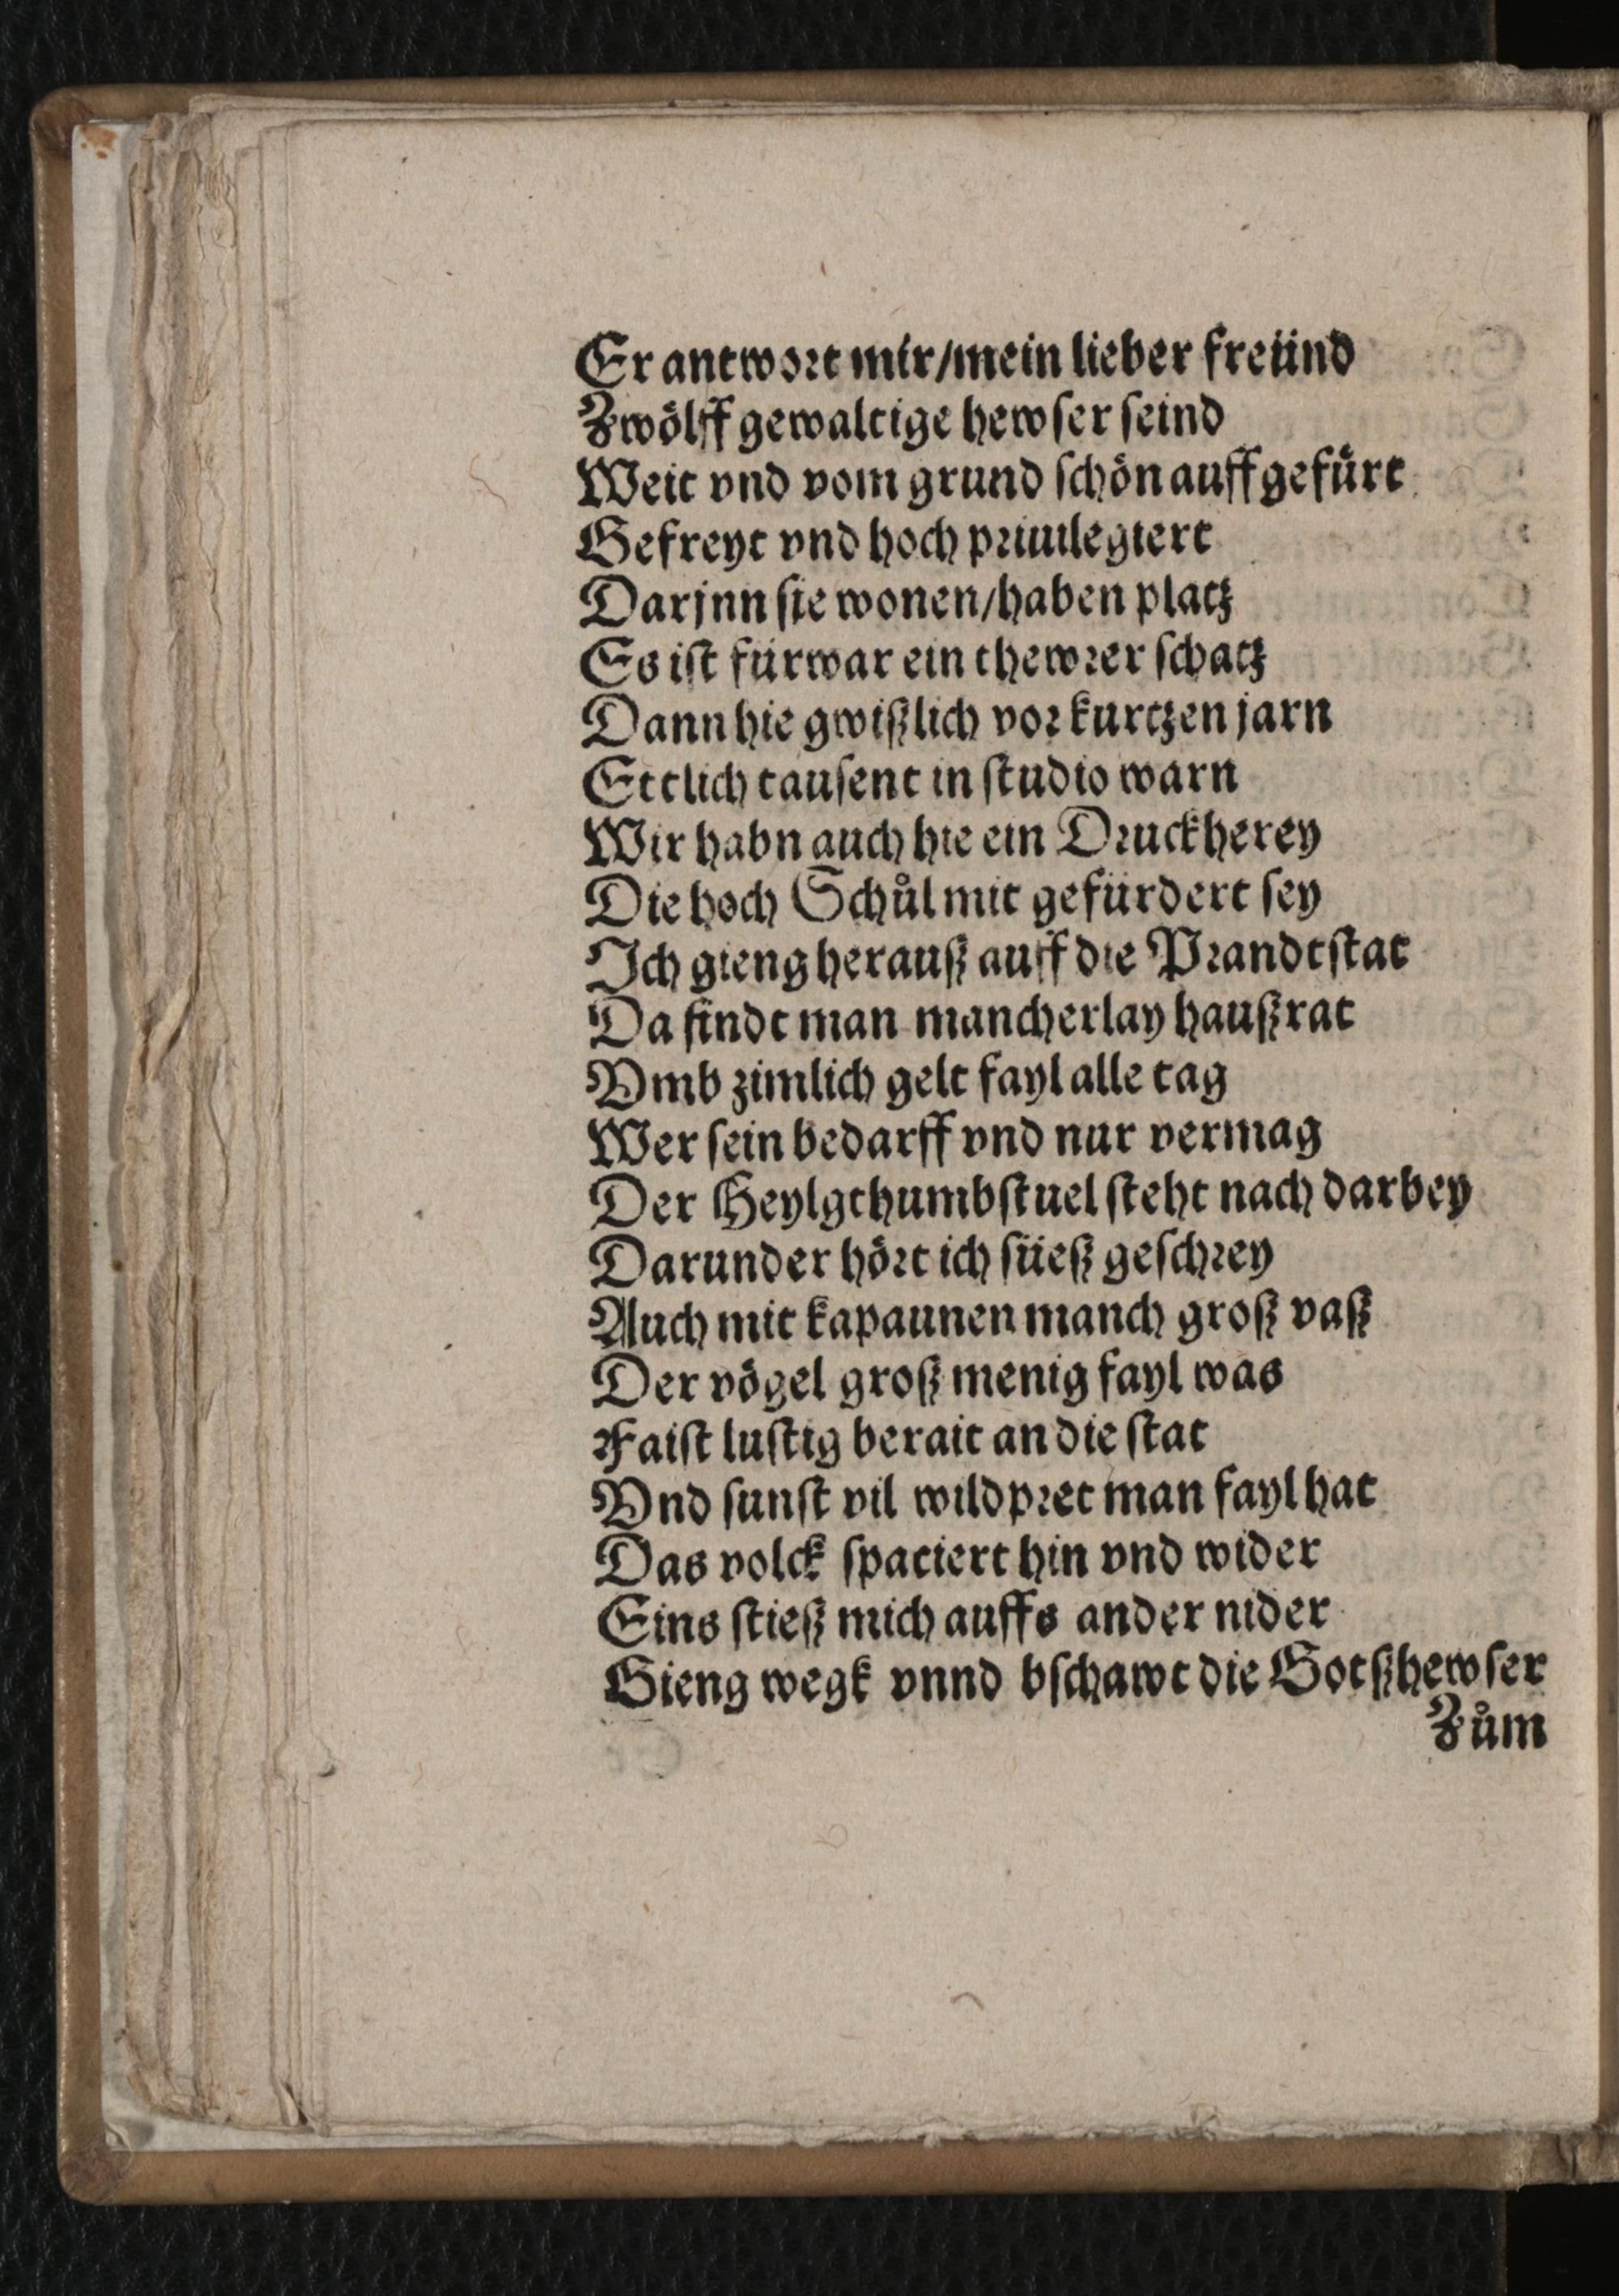 Er antwort mir/mein lieber freünd
Zwölff gewaltige hewser seind
Weit vnd vom grund schön auffgefürt
Gefreyt vnd hoch priuilegiert
Darjnn sie wonen/haben platz
Es ist fürwar ein thewrer schatz
Dann hie gwißlich vor kurtzen jarn
Ettlich tausent in studio warn
Wir habn auch hie ein Druckherey
Die hoch Schůl mit gefürdert sey
Ich gieng herauß auff die Prandtstat
Da findt man mancherlay haußrat
Vmb zimlich gelt fayl alle tag
Wer sein bedarff vnd nur vermag
Der Heylgthumbstuel steht nach darbey
Darunder hört ich süeß geschrey
Auch mit kapaunen manch groß vaß
Der vögel groß menig fayl was
Faist lustig berait an die stat
Vnd sunst vil wildpret man fayl hat
Das volck spatiert hin vnd wider
Eins stieß mich auffs ander nider
Gieng wegk vnnd bschawt die Gotßhewser
Zům